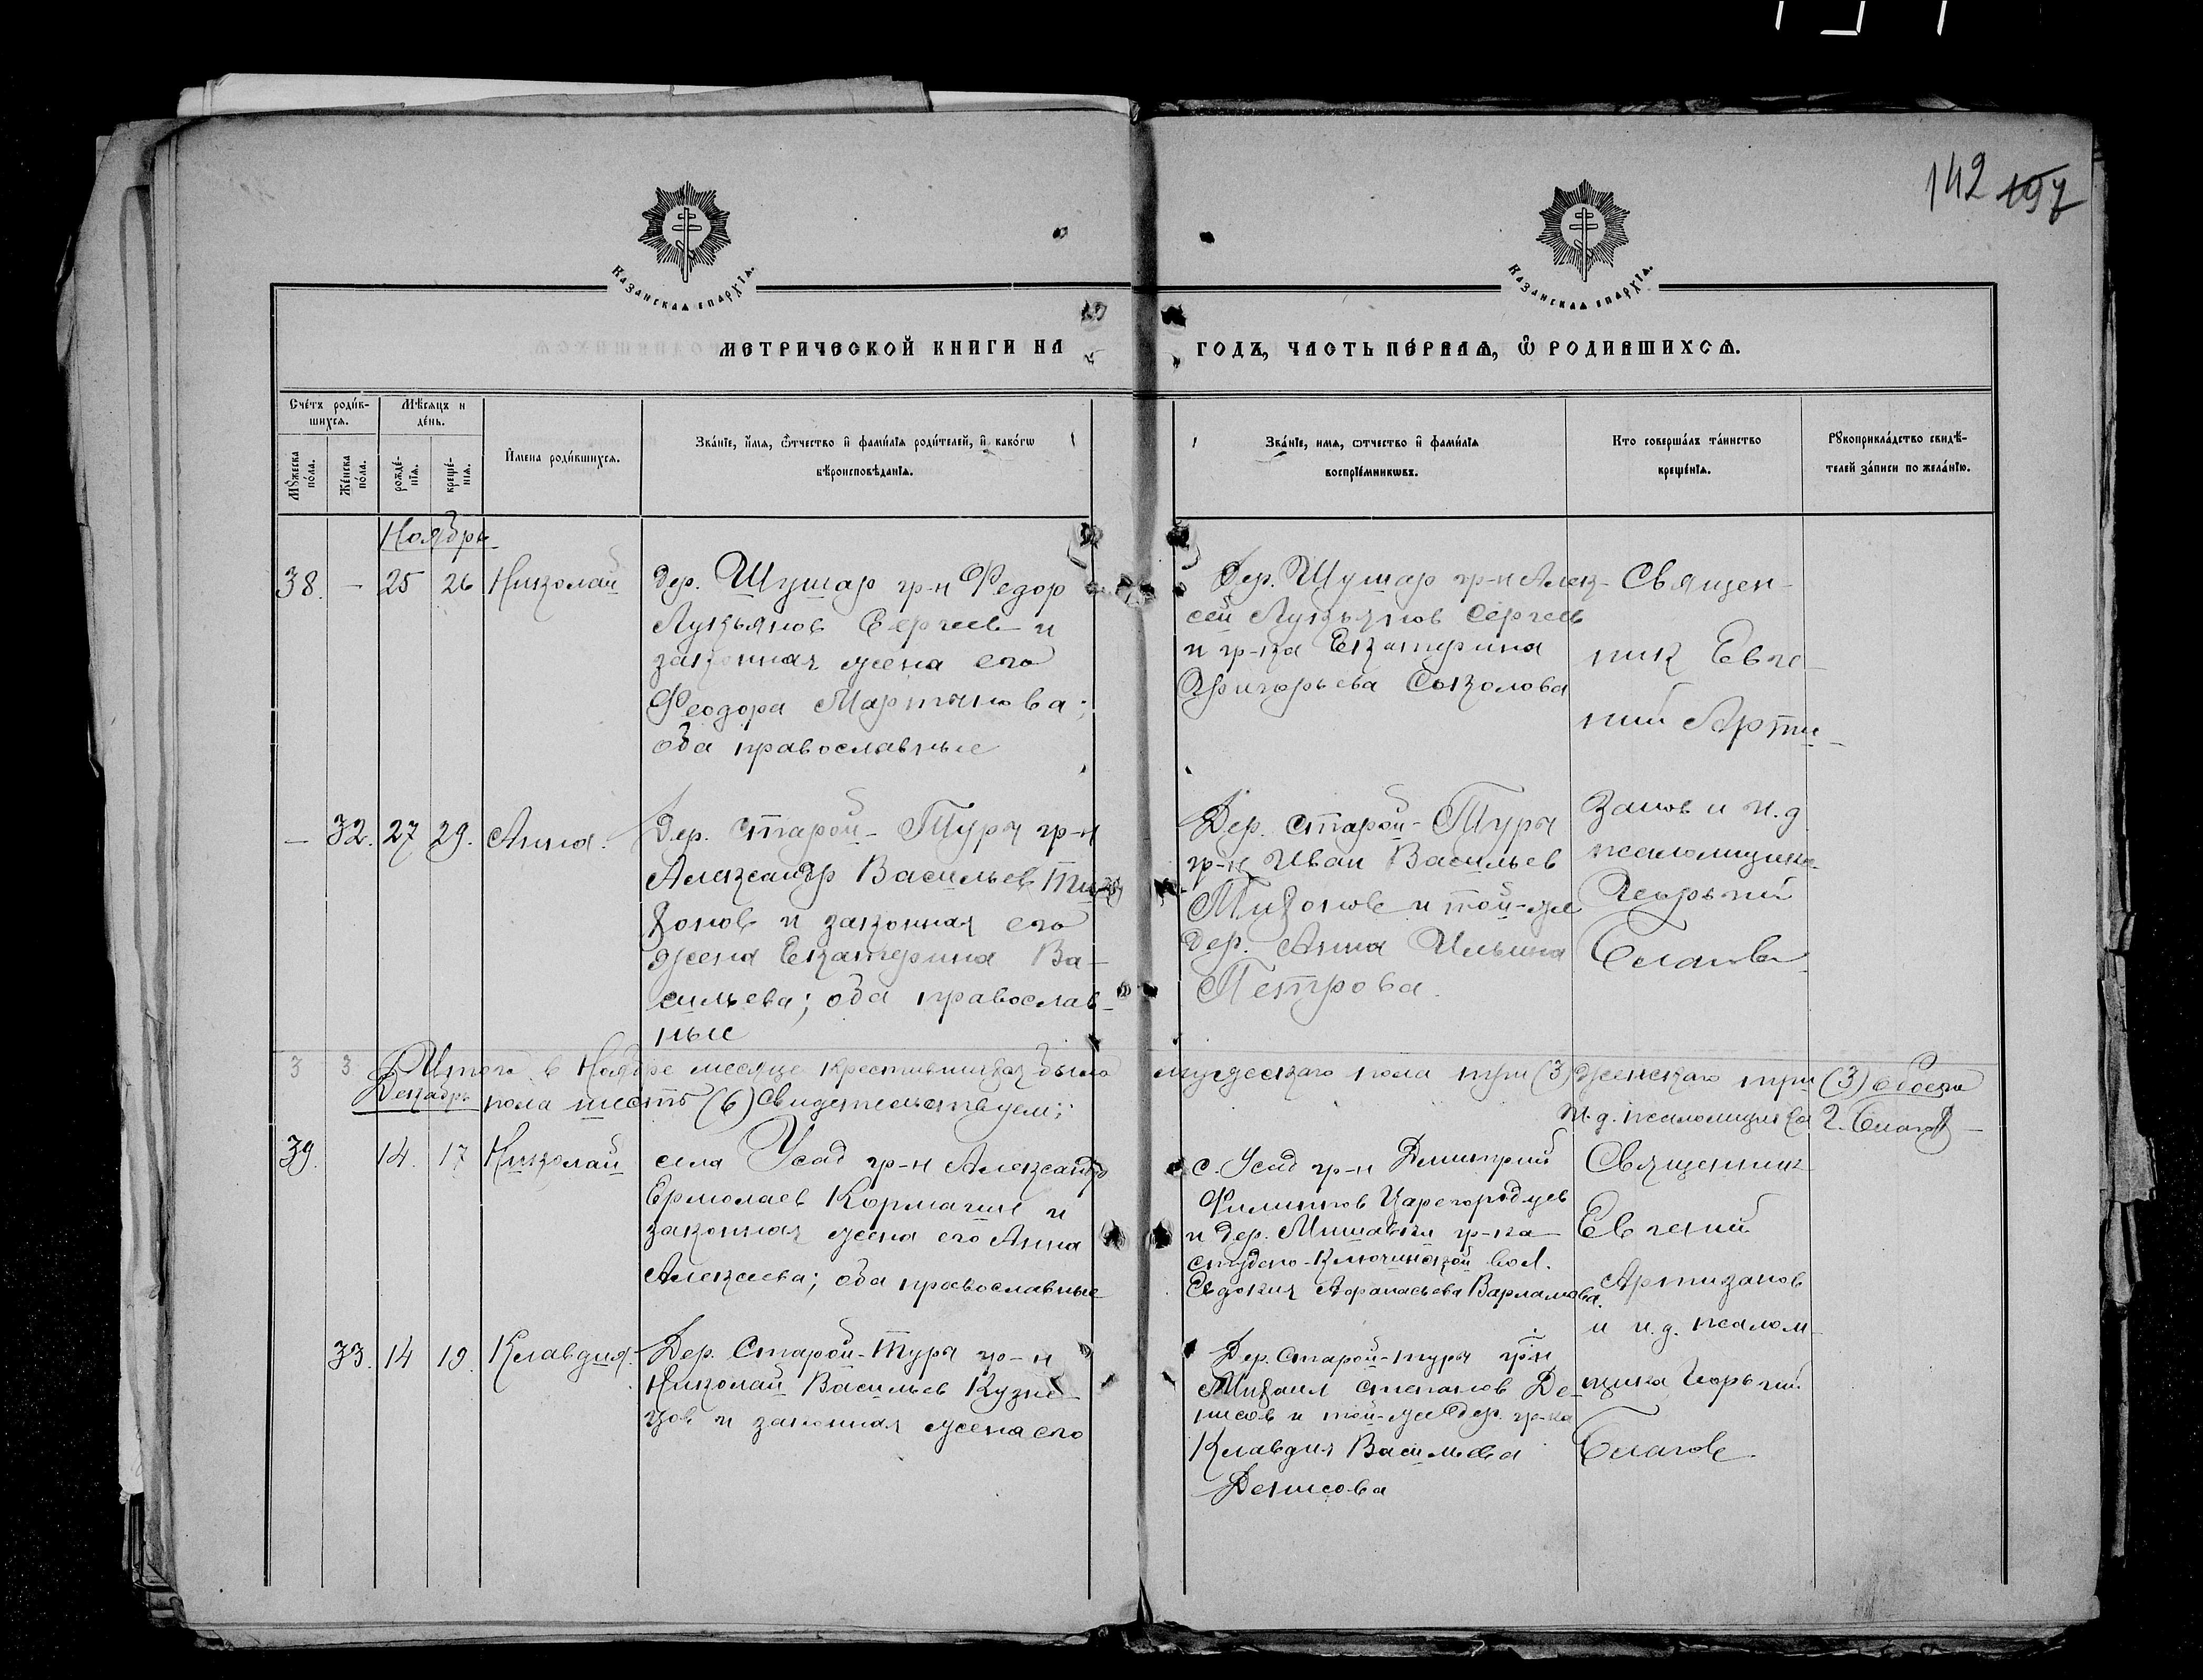 142 197
Казанская епархїя.
Казанская епархїя.
МЕТРИЧЕСКОЙ КНИГИ НА
ГОДЪ, ЧАСТЬ ПЕ́РВАЯ, Ѽ РОДИВШИХСѦ.
Сче́тъ роди́в-
шихсѧ.
Мѣ́сяцъ и
де́нь.
Мꙋ́жеска
по́ла.
Же́нска
по́ла.
рожде́-
нїѧ.
креще́-
нїѧ.
И҆мена роди́вшихсѧ.
Зва́нїе, и҆́мѧ, ѻ҆́тчество и҆ фами́лїѧ роди́телей, и҆ како́гѡ
вѣроисповѣ́данїѧ.
Зва́нїе, имѧ, ѻтчество и҆ фами́лїѧ
воспрїе́мникѡвъ.
Кто соверша́лъ та́инство
креще́нїѧ.
Рꙋкоприкла́дство свидѣ́-
телей за́писи по жела́нїю.
Ноябрь
38. — 25 26 Николай
дер. Шушар гр-н Федор
Лукьянов Сергеев и
законная жена его
Феодора Мартынова;
оба православные
Дер. Шушар гр-н Алек-
сей Лукьянов Сергеев
и гр-ка Екатерина
Григорьева Соколова
Священ-
ник Евге-
ний Арти-
— 32. 27 29. Анна.
Дер. Старой-Туры гр-н
Александр Васильев Ти-
хонов и законная его
жена Екатерина Ва-
сильева; оба православ-
ные
Дер. Старой-Туры
гр-н Иван Васильев
Тихонов и той-же
дер. Анна Ильина
Петрова.
занов и и.д
псаломщика
Георгий
Благов
3 3 Итого в Ноябре месяце крестившихся было мужескаго пола три (3) женскаго три (3) обоего
Декабрь пола шесть (6) Свидетельствуем:
и.д. псаломщика Г. Благов
39. 14. 17 Николай
села Усад гр-н Александр
Ермолаев Кормагин и
законная жена его Анна
Алексеева; оба православные
с. Усад гр-н Димитрий
Филиппов Царегородцев
и дер. гр-ка
студено-Ключинской вол.
Евдокия Афанасьева Варламова.
Священник
Евгений
Артизанов
и и.д. псалом-
33. 14 19. Клавдия.
Дер. Старой-Туры гр-н
Николай Васильев Кузне-
цов и законная жена его
Дер. Старой-туры гр-н
Михаил Степанов Де-
нисов и той-же дер. гр-ка
Клавдия Васильева
Денисова
щика Георгий
Благов